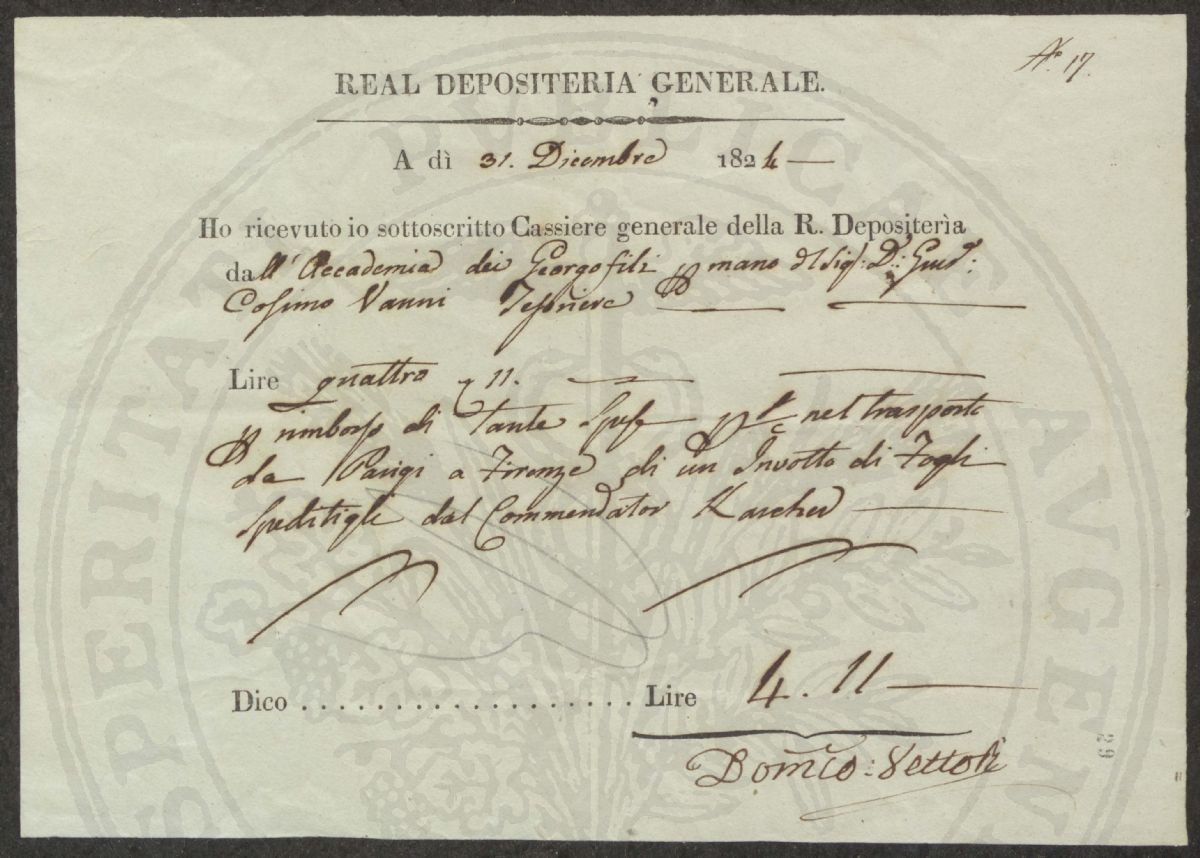 N.° 17.
REAL DEPOSITERIA GENERALE.
A dì 31. Dicembre 1824
Ho ricevuto io sottoscritto Cassiere generale della R. Depositerìa
dall' Accademia dei Georgofili p mano del Sig.
Cosimo Vanni Tesoriere
Lire quattro 11.
p rimborso di tante spese nel trasporto
da Parigi a Firenze di un Involto di Fogli
speditigli dal Commendator Karcher
Dico . . . . . . . . . . . . . . . . . . . Lire 4. 11
Domco: Vettori
59
PROSPERITATI PUBLICAE AUGENDAE